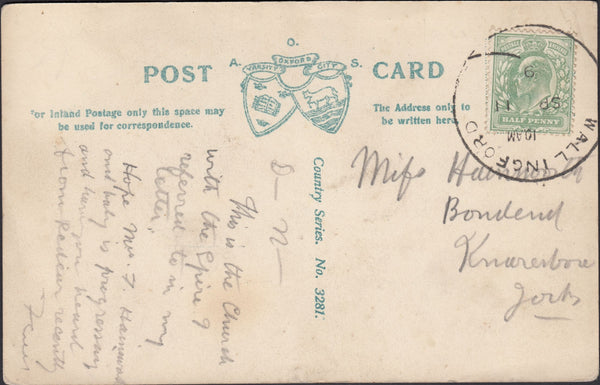 POST CARD
A. O. S.
VARSITY OXFORD CITY
For Inland Postage only this space may
be used for correspondence.
The Address only to
be written here.
HALF PENNY
WALLINGFORD
10 AM
SP 11
Country Series. No. 3281.
D – N –
This is the Church
with the Spire I
referred to in my
letter.
Hope Mrs F.
and baby is progressing
and have you heard
from Redcar recently
Miss
Bondend
Knaresboro
Yorks